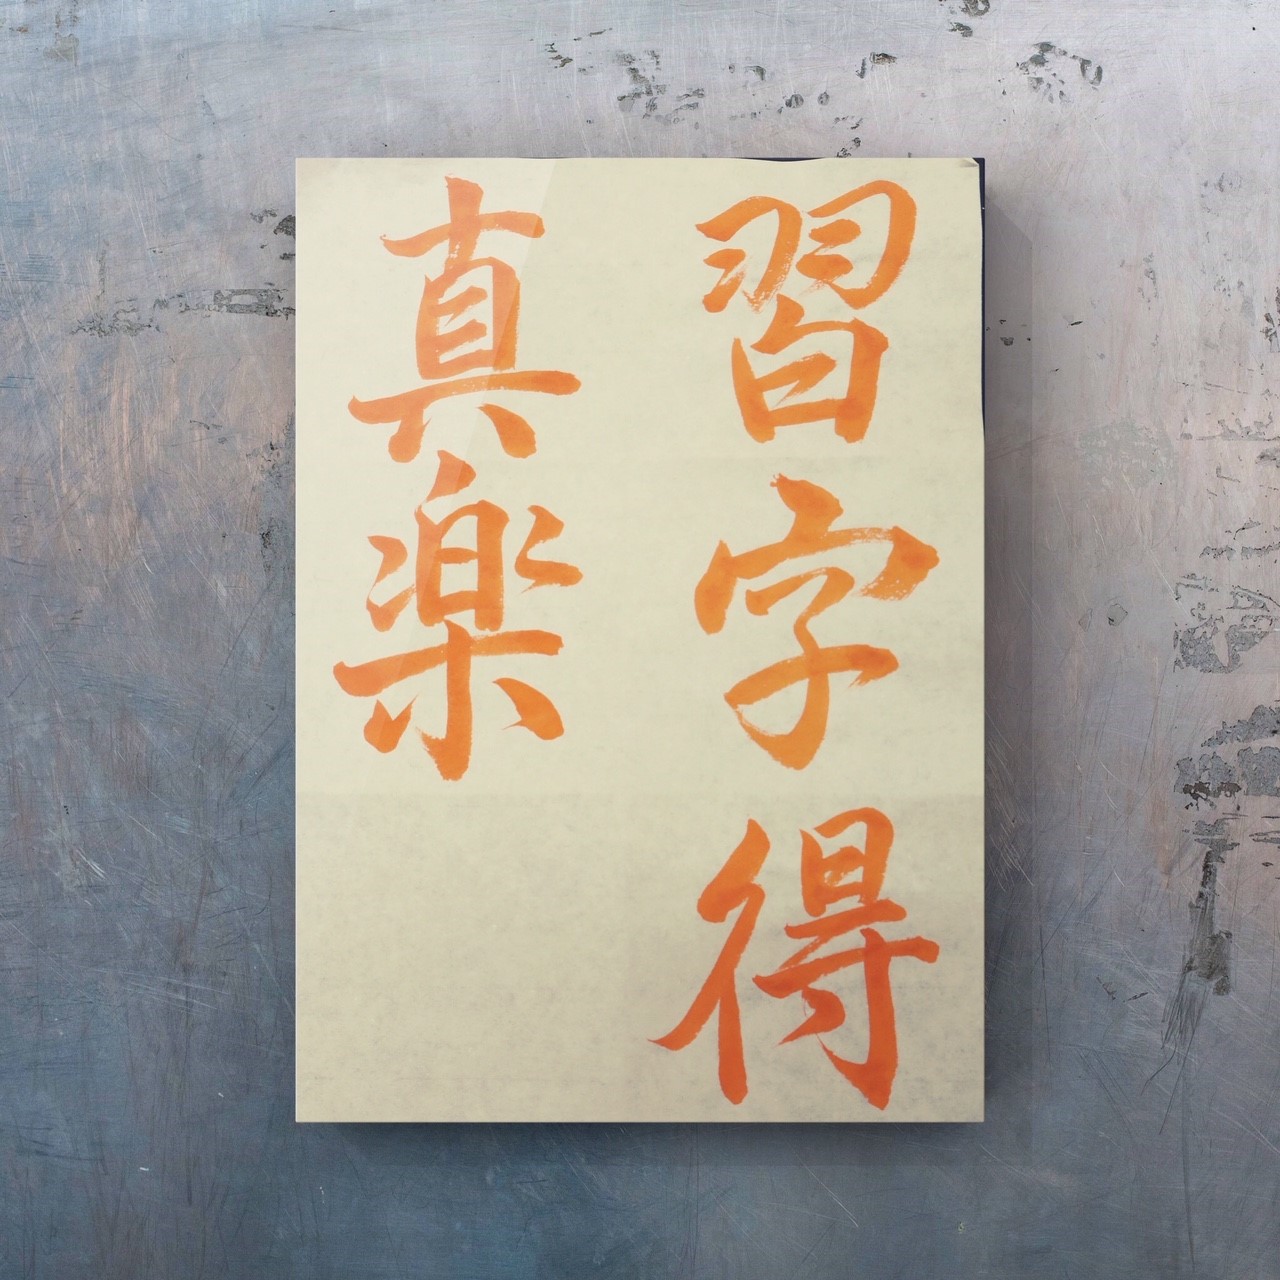 習字得
真楽